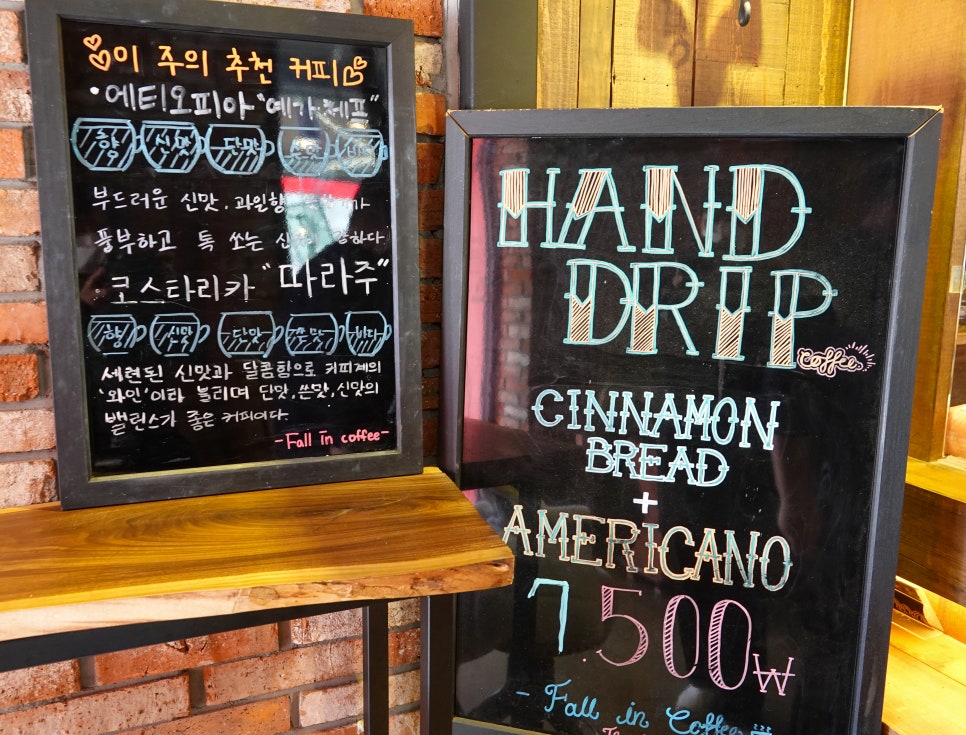 이 주의 추천 커피
·에티오피아 "예가체프"
향 신맛 단맛 쓴맛 바디
부드러운 신맛, 과일향
풍부하고 톡 쏘는
코스타리카 "따라주"
향 신맛 단맛 쓴맛 바디
세련된 신맛과 달콤함으로 커피계의
'와인'이라 불리며 단맛, 쓴맛, 신맛의
밸런스가 좋은 커피이다.
-Fall in coffee-
HAND
DRIP
Coffee
CINNAMON
BREAD
+
AMERICANO
7.500₩
- Fall in Coffee